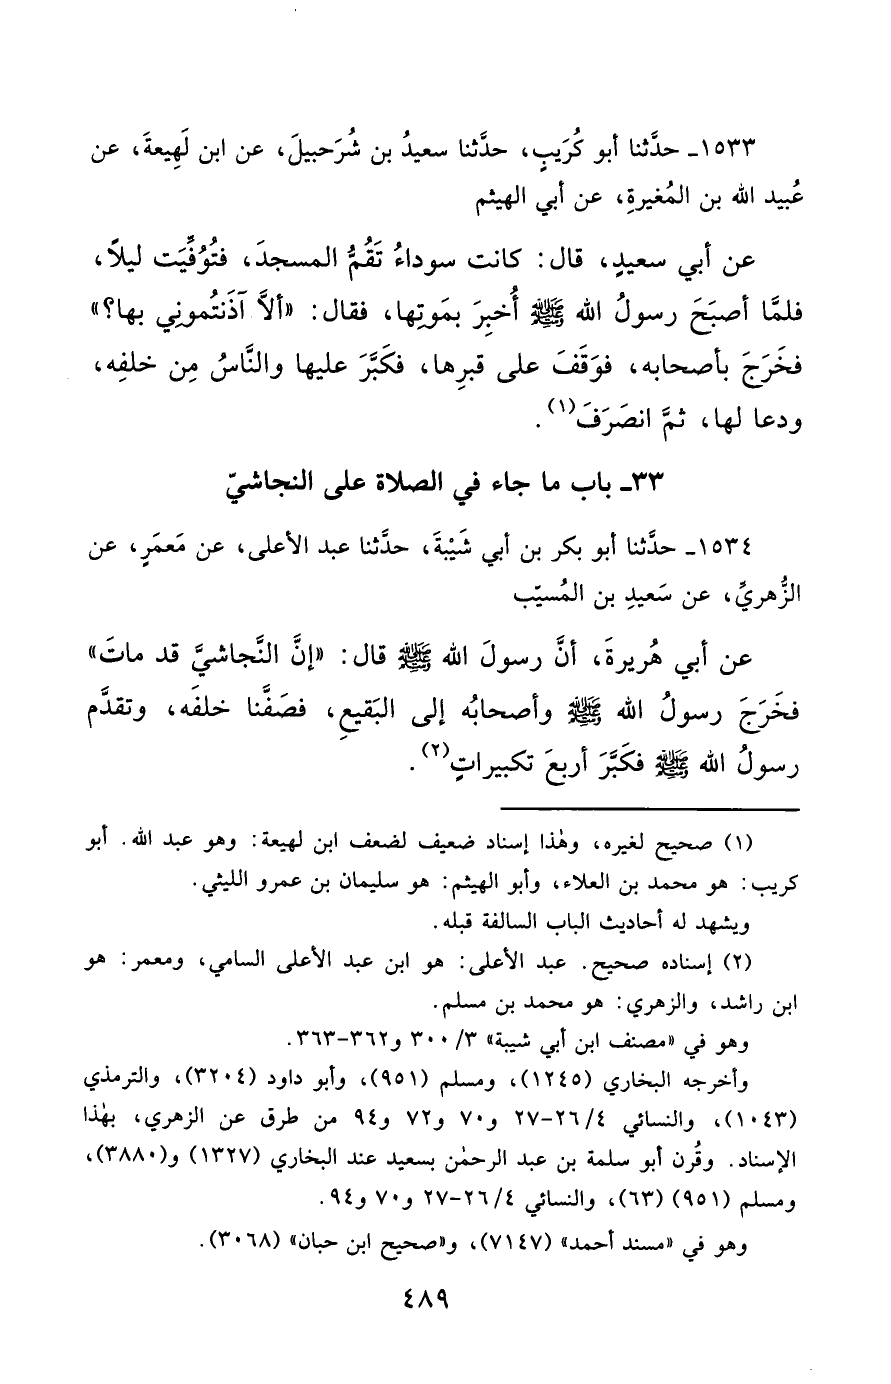 ١٥٣٣ـ حدَّثنا أبو كُرَيبٍ، حدَّثنا سعيدُ بن شُرَحبيلَ، عن ابن لَهِيعةَ، عن
عُبيد الله بن المُغيرةِ، عن أبي الهيثم
عن أبي سعيدٍ، قال: كانت سوداءُ تَقُمُّ المسجدَ، فتُوُفِّيَت ليلاً،
فلمَّا أصبَحَ رسولُ الله ﷺ أُخبِرَ بمَوتِها، فقال: «ألاَّ آذَنتُموني بها؟»
فخَرَجَ بأصحابه، فوَقَفَ على قبرِها، فكَبَّرَ عليها والنَّاسُ مِن خلفِه،
ودعا لها، ثمَّ انصَرَفَ(١).
٣٣ـ باب ما جاء في الصلاة على النجاشيّ
١٥٣٤ـ حدَّثنا أبو بكر بن أبي شَيْبةَ، حدَّثنا عبد الأعلى، عن مَعمَرٍ، عن
الزُّهريِّ، عن سَعيدِ بن المُسيّب
عن أبي هُريرةَ، أنَّ رسولَ الله ﷺ قال: «إنَّ النَّجاشيَّ قد ماتَ»
فخَرَجَ رسولُ الله ﷺ وأصحابُه إلى البَقيعِ، فصَفَّنا خلفَه، وتقدَّم
رسولُ الله ﷺ فكَبَّرَ أربعَ تكبيراتٍ(٢).
(١) صحيح لغيره، وهٰذا إسناد ضعيف لضعف ابن لهيعة: وهو عبد الله. أبو
كريب: هو محمد بن العلاء، وأبو الهيثم: هو سليمان بن عمرو الليثي.
ويشهد له أحاديث الباب السالفة قبله.
(٢) إسناده صحيح. عبد الأعلى: هو ابن عبد الأعلى السامي، ومعمر: هو
ابن راشد، والزهري: هو محمد بن مسلم.
وهو في «مصنف ابن أبي شيبة» ٣/ ٣٠٠ و٣٦٢-٣٦٣.
وأخرجه البخاري (١٢٤٥)، ومسلم (٩٥١)، وأبو داود (٣٢٠٤)، والترمذي
(١٠٤٣)، والنسائي ٤/ ٢٦-٢٧ و٧٠ و٧٢ و٩٤ من طرق عن الزهري، بهٰذا
الإسناد. وقُرن أبو سلمة بن عبد الرحمٰن بسعيد عند البخاري (١٣٢٧) و(٣٨٨٠)،
ومسلم (٩٥١) (٦٣)، والنسائي ٤/ ٢٦-٢٧ و٧٠ و٩٤.
وهو في «مسند أحمد» (٧١٤٧)، و«صحيح ابن حبان» (٣٠٦٨).
٤٨٩